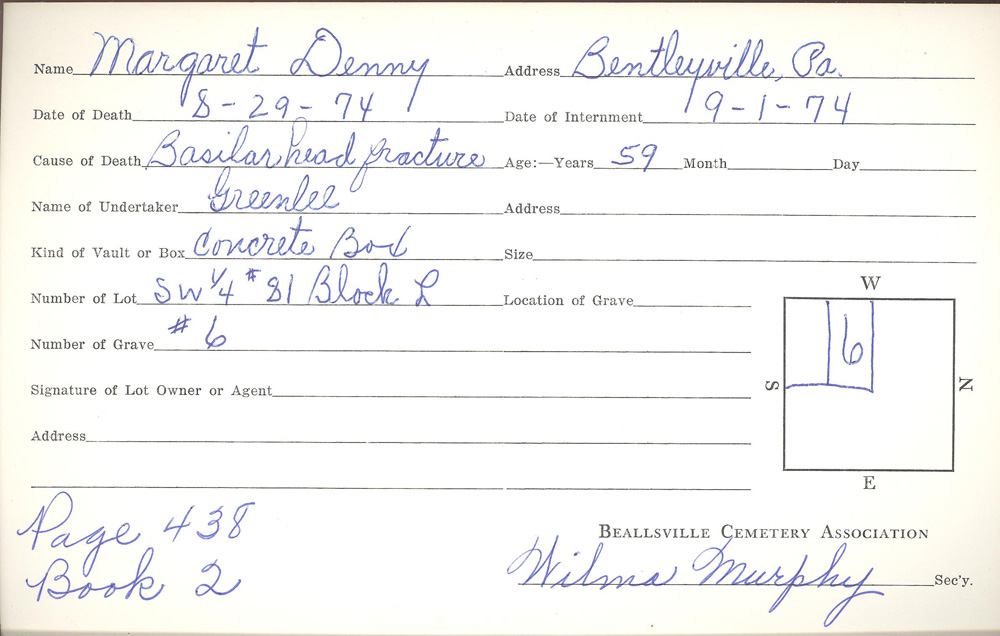 Name Margaret Denny Address Bentleyville, Pa.
Date of Death 8-29-74 Date of Internment 9-1-74
Cause of Death Basilar head fracture Age:—Years 59 Month Day
Name of Undertaker Greenlee Address
Kind of Vault or Box Concrete Box Size
Number of Lot SW 1/4 # 81 Block L Location of Grave
Number of Grave # 6
Signature of Lot Owner or Agent
Address
W
6
S N
E
Page 438
Book 2
BEALLSVILLE CEMETERY ASSOCIATION
Wilma Murphy Sec'y.